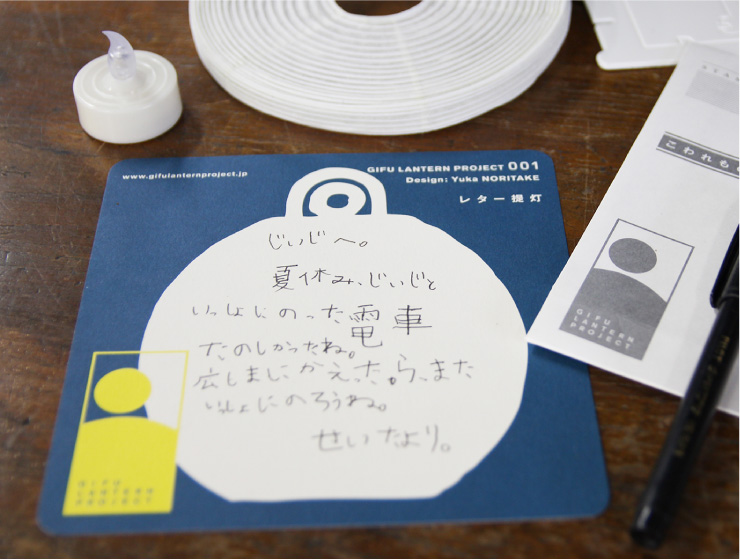 www.gifulanternproject.jp
GIFU LANTERN PROJECT 001
Design: Yuka NORITAKE
レター提灯
じいじへ。
夏休み、じいじと
いっしょにのった電車
たのしかったね。
広しまにかえったら、また
いっしょにのろうね。
せいたより。
GIFU
LANTERN
PROJECT
こわれもの
GIFU
LANTERN
PROJECT